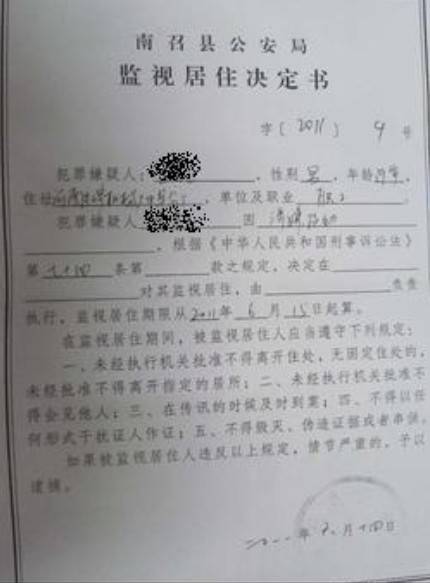 南召县公安局
监视居住决定书
字〔2011〕 9 号
犯罪嫌疑人： ，性别 男 ，年龄
住址 ，单位及职业
犯罪嫌疑人 因
，根据《中华人民共和国刑事诉讼法》
第 条第 款之规定，决定在
对其监视居住，由 负责
执行，监视居住期限从2011年 6 月 15日起算。
在监视居住期间，被监视居住人应当遵守下列规定：
一、未经执行机关批准不得离开住处，无固定住处的，
未经批准不得离开指定的居所；二、未经执行机关批准不
得会见他人；三、在传讯的时候及时到案；四、不得以任
何形式干扰证人作证；五、不得毁灭、伪造证据或者串供。
如果被监视居住人违反以上规定，情节严重的，予以
逮捕。
二〇一一年六月十四日